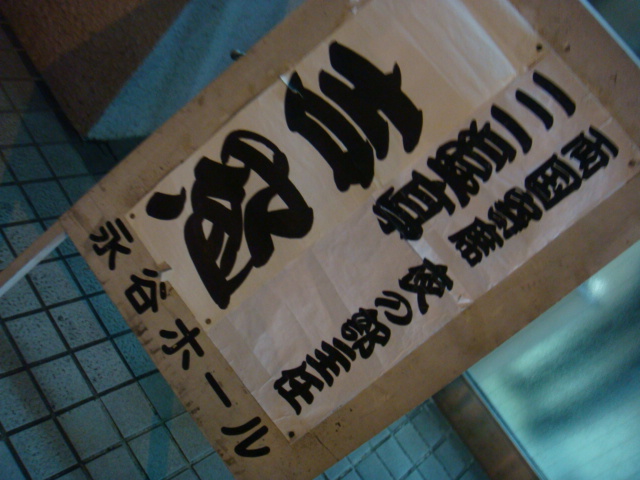 両国寄席 夜の部主任
三遊亭
吉窓
永谷ホール